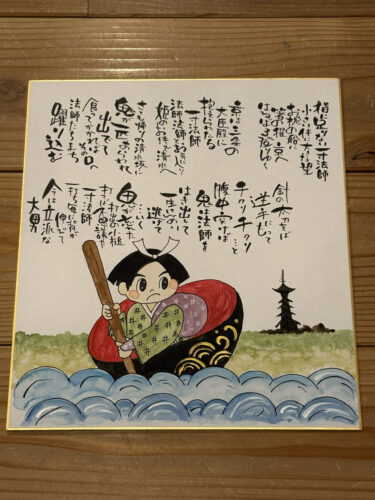 指に足りない一寸法師
小さい体に大きな望
お椀の船に
箸の櫂 京へ
はるばる上りゆく
京は三条の
大臣殿に
抱えられたる
一寸法師
法師法師とお気に入り
姫のお供で清水へ
さても帰りの清水坂に
鬼が一匹あらわれ
出でて
食ってかかればその口へ
法師たちまち
躍り込む
針の太刀をば
逆手にもって
チクリチクリ…と
腹中突けば
鬼は法師を
はき出して
一生けんめい
逃げて
いく
鬼が忘れた
打ち出の小槌
打てば不思議や
一寸法師
一打ち毎に背が
伸びて
今は立派な
大男